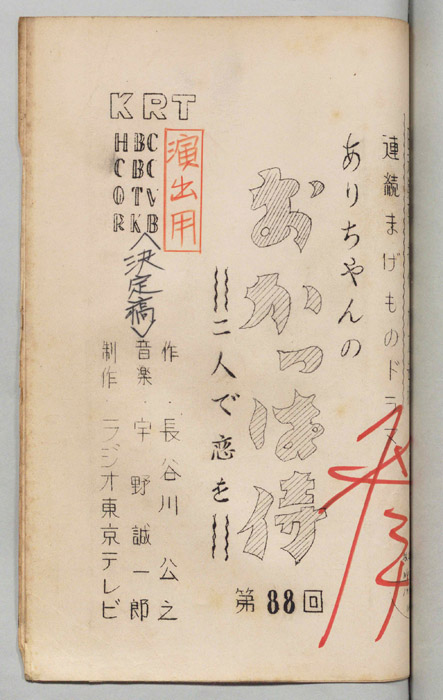 連続まげものドラマ
ありちゃんの
おかっぱ侍
二人で恋を
第88回
KRT
HBC
CBC
OTV
RKB
演出用
<決定稿>
作・長谷川 公之
音楽・宇野誠一郎
制作・ラジオ東京テレビ